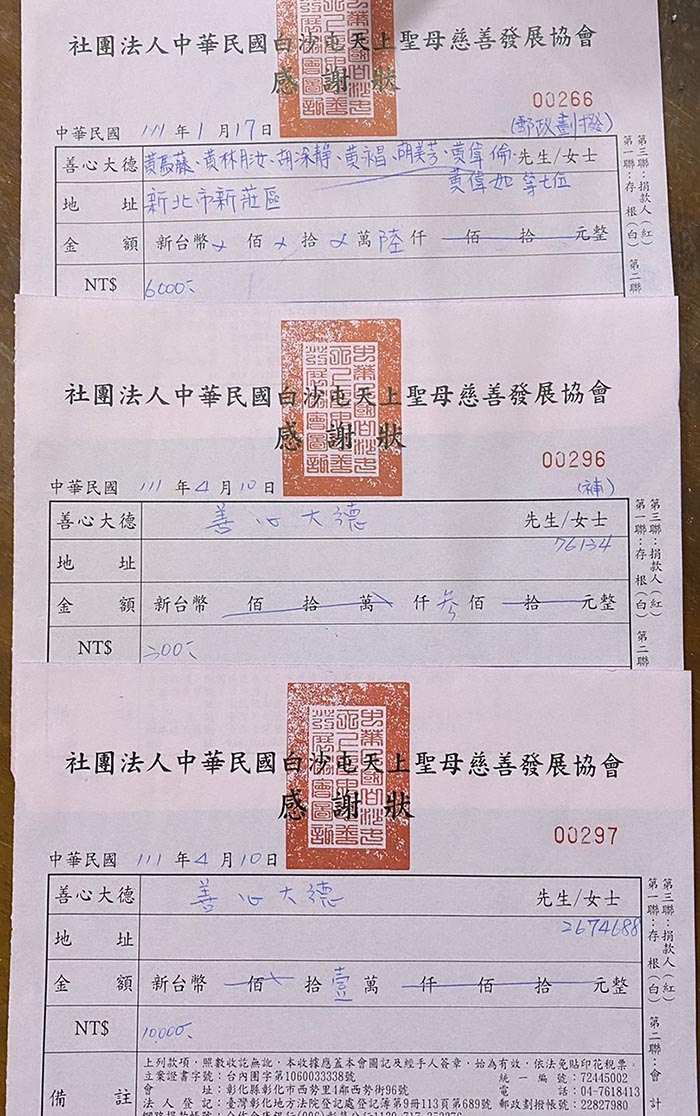 社團法人中華民國白沙屯天上聖母慈善發展協會
感謝狀
00266
中華民國 111 年 1 月 17 日 (郵政劃撥)
善心大德 黃林月汝、胡深靜、黃昌、胡美芳、黃偉倫 先生/女士
黃偉如 等七位
地址 新北市新莊區
金額 新台幣 佰 拾 萬 陸 仟 佰 拾 元整
NT$ 6000
第三聯:捐款人(紅)
第一聯:存根(白) 第二聯
社團法人中華民國白沙屯天上聖母慈善發展協會
感謝狀
00296
中華民國 111 年 4 月 10 日 (補)
善心大德 善心大德 先生/女士
76134
地址
金額 新台幣 佰 拾 萬 仟 參 佰 拾 元整
NT$ 300
第三聯:捐款人(紅)
第一聯:存根(白) 第二聯
社團法人中華民國白沙屯天上聖母慈善發展協會
感謝狀
00297
中華民國 111 年 4 月 10 日
善心大德 善心大德 先生/女士
2674688
地址
金額 新台幣 佰 拾 壹 萬 仟 佰 拾 元整
NT$ 10000
第三聯:捐款人(紅)
第一聯:存根(白) 第二聯:會計
備註
上列款項,照數收訖無訛,本收據應蓋本會圖記及經手人簽章,始為有效,依法免貼印花稅票。
立案證書字號:台內團字第1060033338號 統一編號:72445002
會址:彰化縣彰化市西勢里4鄰西勢街96號 電話:04-7618413
法人登記:臺灣彰化地方法院登記處登記簿第9冊113頁第689號 郵政劃撥帳號:22827980